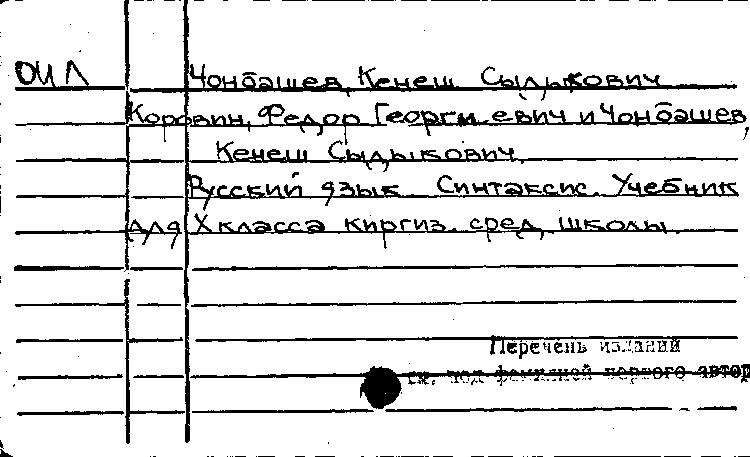 ОИЛ Чонбашев, Кенеш Сыдыкович
Коровин, Федор Георгиевич и Чонбашев,
Кенеш Сыдыкович.
Русский язык. Синтаксис. Учебник
для X класса киргиз. сред. школы.
Перечень изданий
см. под фамилией первого автор